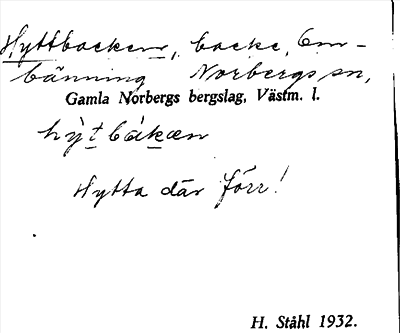 Hyttbacken, backe, Om-
bänning Norbergs sn,
Gamla Norbergs bergslag, Västm. l.
hỳtbàkæn
Hytta där förr!
H. Ståhl 1932.